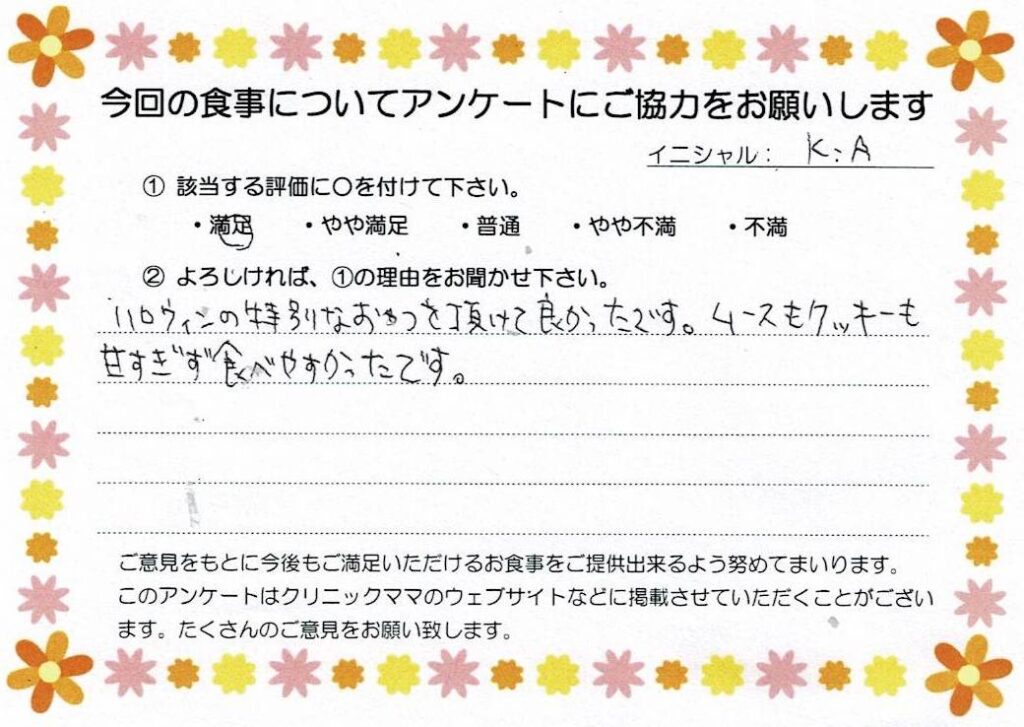 今回の食事についてアンケートにご協力をお願いします
イニシャル： K:A
① 該当する評価に〇を付けて下さい。
・満足 ・やや満足 ・普通 ・やや不満 ・不満
② よろしければ、①の理由をお聞かせ下さい。
ハロウィンの特別なおやつを頂けて良かったです。ムースもクッキーも
甘すぎず食べやすかったです。
ご意見をもとに今後もご満足いただけるお食事をご提供出来るよう努めてまいります。
このアンケートはクリニックママのウェブサイトなどに掲載させていただくことがござい
ます。たくさんのご意見をお願い致します。